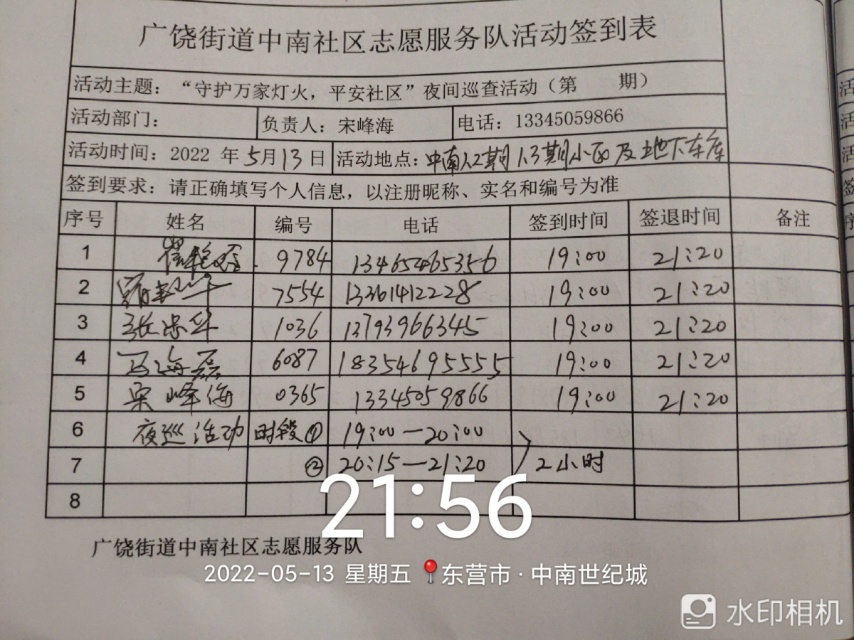 广饶街道中南社区志愿服务队活动签到表
活动主题：“守护万家灯火，平安社区”夜间巡查活动（第 期）
活动部门： 负责人：宋峰海 电话：13345059866
活动时间：2022 年 5月13日 活动地点：中南1.2期 1.3期小区及地下车库
签到要求：请正确填写个人信息，以注册昵称、实名和编号为准
序号 姓名 编号 电话 签到时间 签退时间 备注
1 9784 13465465356 19:00 21:20
2 7554 13361412228 19:00 21:20
3 张忠华 1036 13793966345 19:00 21:20
4 马海磊 6087 18354695555 19:00 21:20
5 宋峰海 0365 13345059866 19:00 21:20
6 夜巡活动 时段① 19:00—20:00
7 ② 20:15—21:20 2小时
8
21:56
广饶街道中南社区志愿服务队
2022-05-13 星期五 东营市·中南世纪城
水印相机